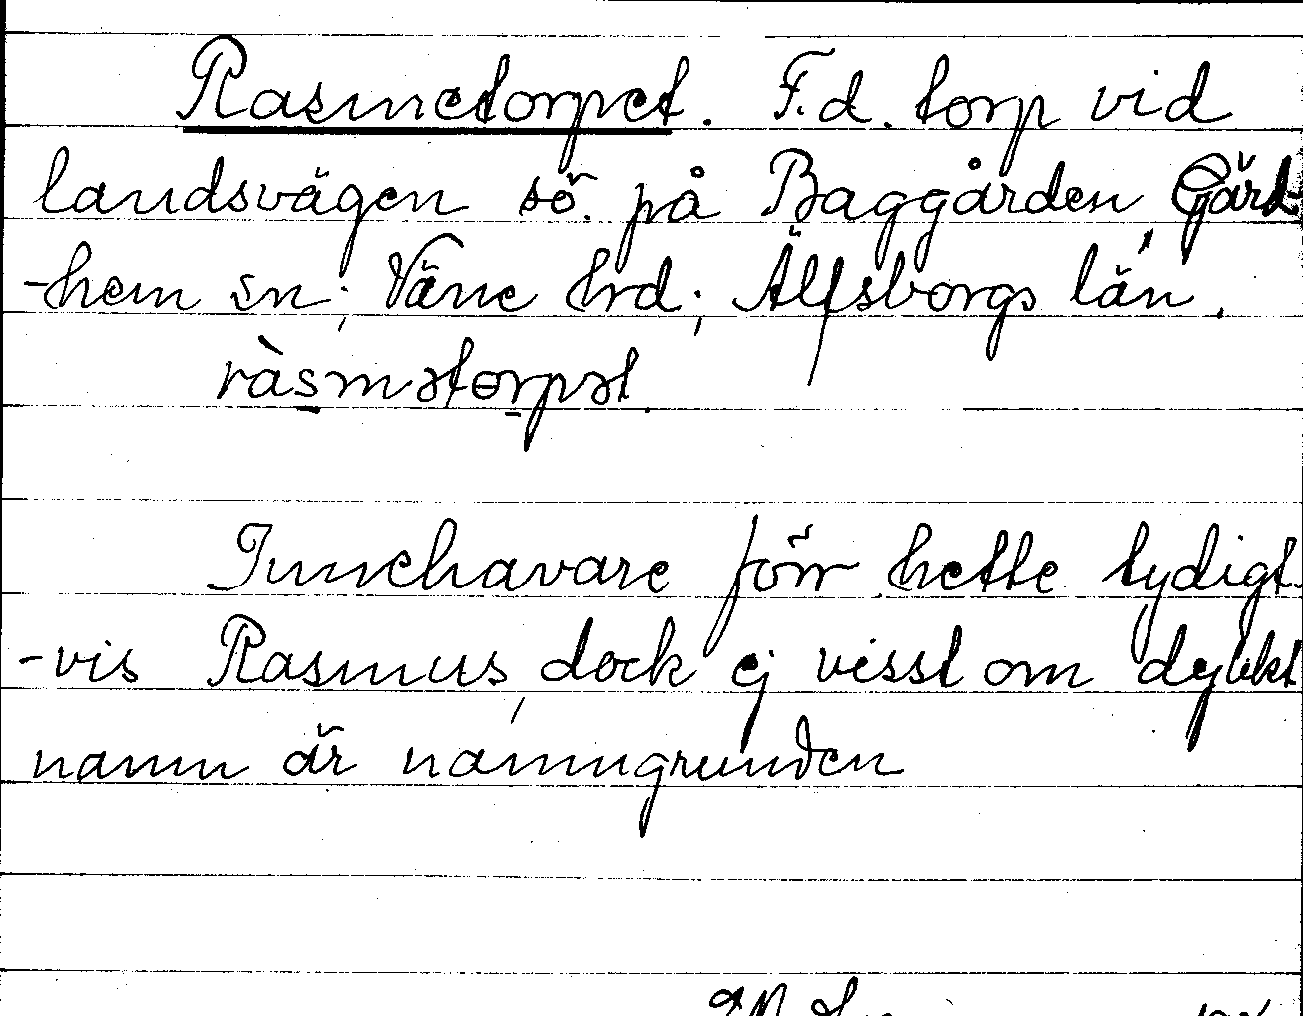 Rasmetorpet. F.d. torp vid
landsvägen sö. på Baggården, Gärd
-hem sn; Väne hrd; Älfsborgs län.
ràsmətorpət
Innehavare förr hette tydigt
-vis Rasmus, dock ej visst om dylikt
namn är namngrunden